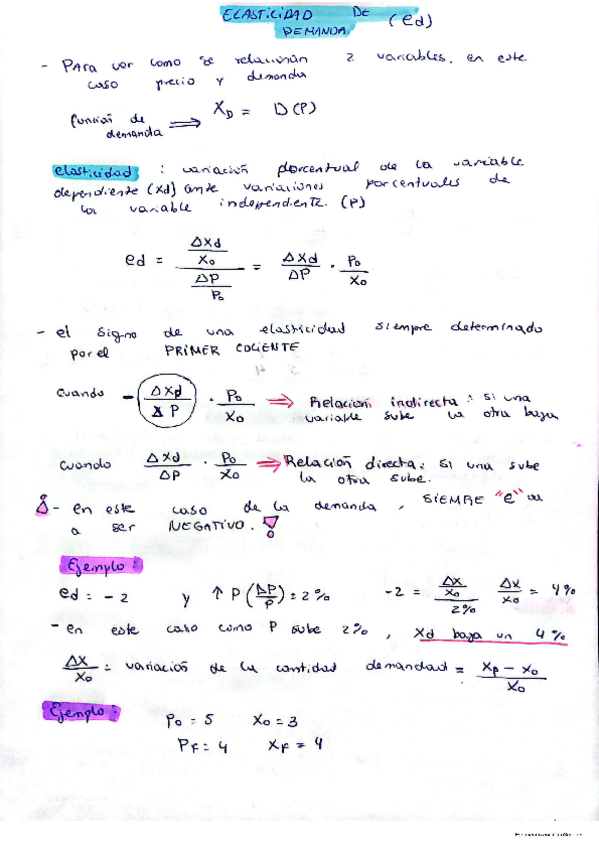 ELASTICIDAD DE DEMANDA (ed)
- Para ver como se relacionan 2 variables, en este
caso precio y demanda
función de demanda ⟹ X_D = D(P)
elasticidad : variación porcentual de la variable
dependiente (Xd) ante variaciones porcentuales de
la variable independiente. (P)
ed = (ΔXd/X₀)/(ΔP/P₀) = ΔXd/ΔP · P₀/X₀
- el signo de una elasticidad siempre determinado
por el PRIMER COCIENTE
cuando - (ΔXd/ΔP) · P₀/X₀ ⟹ Relación indirecta : si una
variable sube la otra baja
cuando ΔXd/ΔP · P₀/X₀ ⟹ Relación directa : si una sube
la otra sube.
¡- en este caso de la demanda, SIEMRE "e" va
a ser NEGATIVO. !
Ejemplo :
ed = -2 y ↑ P (ΔP/P) = 2% -2 = (ΔX/X₀)/2% ΔX/X₀ = 4%
- en este caso como P sube 2%, Xd baja un 4%
ΔX/X₀ = variación de la cantidad demandad = (X_F - X₀)/X₀
Ejemplo :
P₀ = 5 X₀ = 3
P_F = 4 X_F = 4